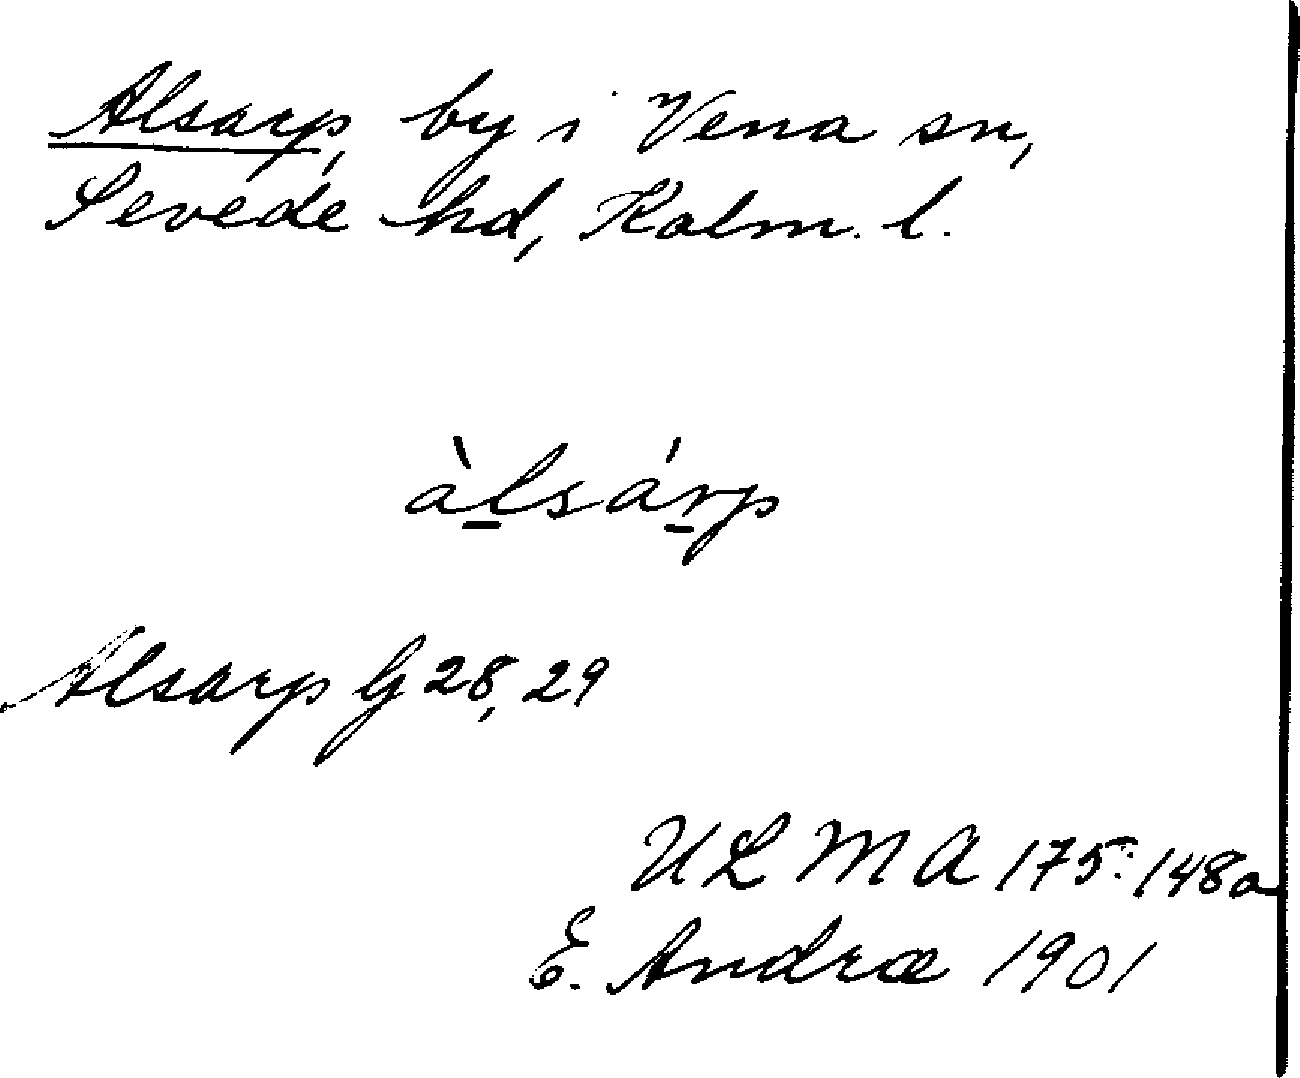 Alsarp, by i Vena sn,
Sevede hd, Kalm. l.
àl̲sár̲p
Alsarp G 28, 29
ULMA 175:148a
E. Andræ 1901